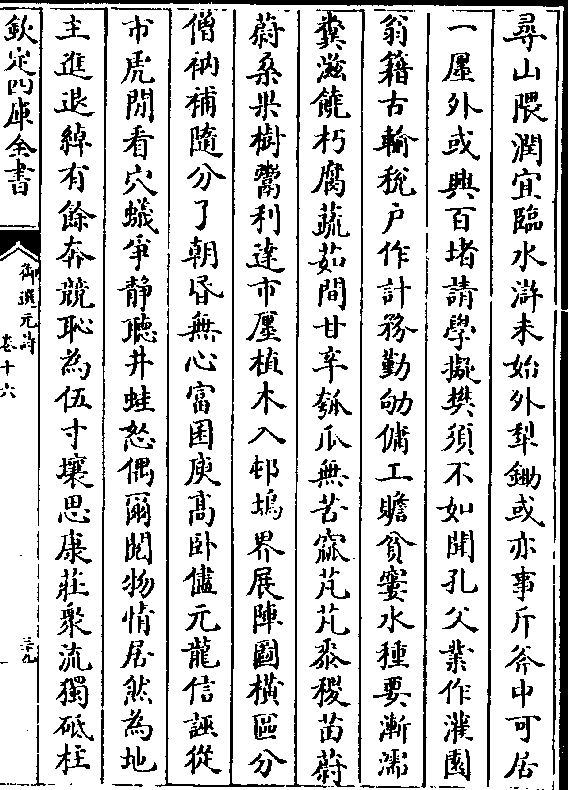 尋山隈潤宜臨水滸未始外犁鋤或亦事斤斧中可居
一廛外或興百堵請學擬樊須不如聞孔父業作灌園
翁籍古輸稅户作計務勤劬傭工贍貧窶水種要漸濡
糞滋饒朽腐蔬茹間甘辛瓠瓜無苦窳芃芃黍稷苗蔚
蔚桑果樹鬻利達市廛植木入邨塢界展陣圖横區分
僧衲補隨分了朝昏無心富囷庾高卧儘元龍信誣從
市虎閒看穴蟻爭静聽井蛙怒偶爾閱物情居然為地
主進退綽有餘奔競恥為伍寸壤思康莊衆流獨砥柱
欽定四庫全書
御選元詩
卷十六
三十九